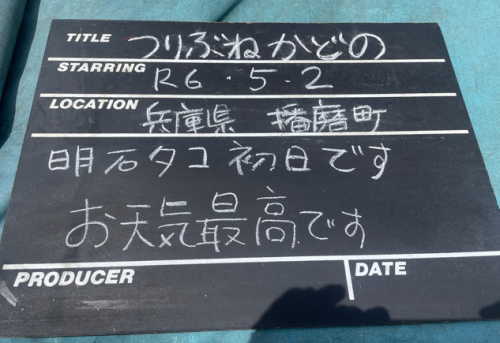 TITLE つりぶねかどの
STARRING R6.5.2
LOCATION 兵庫県 播磨町
明石タコ初日です
お天気最高です
PRODUCER DATE